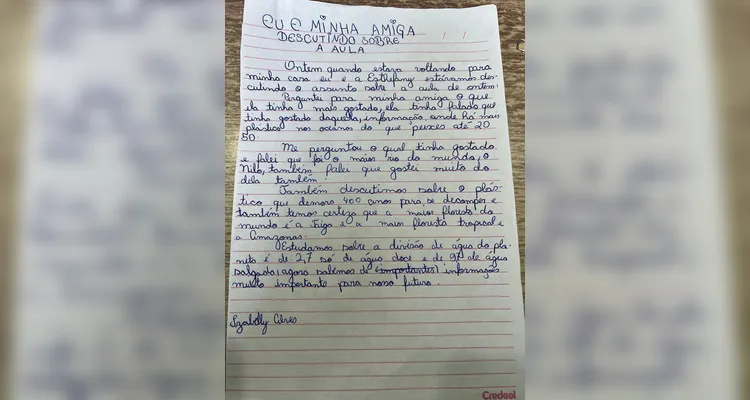 EU E MINHA AMIGA
DESCUTINDO SOBRE
A AULA
Ontem quando estava voltando para
minha casa eu e a Esthefany estávamos des-
cutindo o assunto sobre a aula de ontem:
Perguntei para minha amiga o que
ela tinha mais gostado, ela tinha falado que
tinha gostado daquela, informação onde há mais
plástico nos oceanos do que peixes até 20
50.
Me perguntou o qual tinha gostado
e falei que foi o maior rio do mundo, o
Nilo, também falei que gostei muito do
dela também.
Também descutimos sobre o plás-
tico que demora 400 anos para se decompor e
também temos certeza que a maior floresta do
mundo é a Taiga e a maior floresta tropical é
a Amazonas.
Estudamos sobre a divisão de água do pla-
neta é de 2,7 só de água doce e de 97 de água
salgada, agora sabemos de (importantes) informações
muito importante para nosso futuro.
Izabelly Alves
Credeal